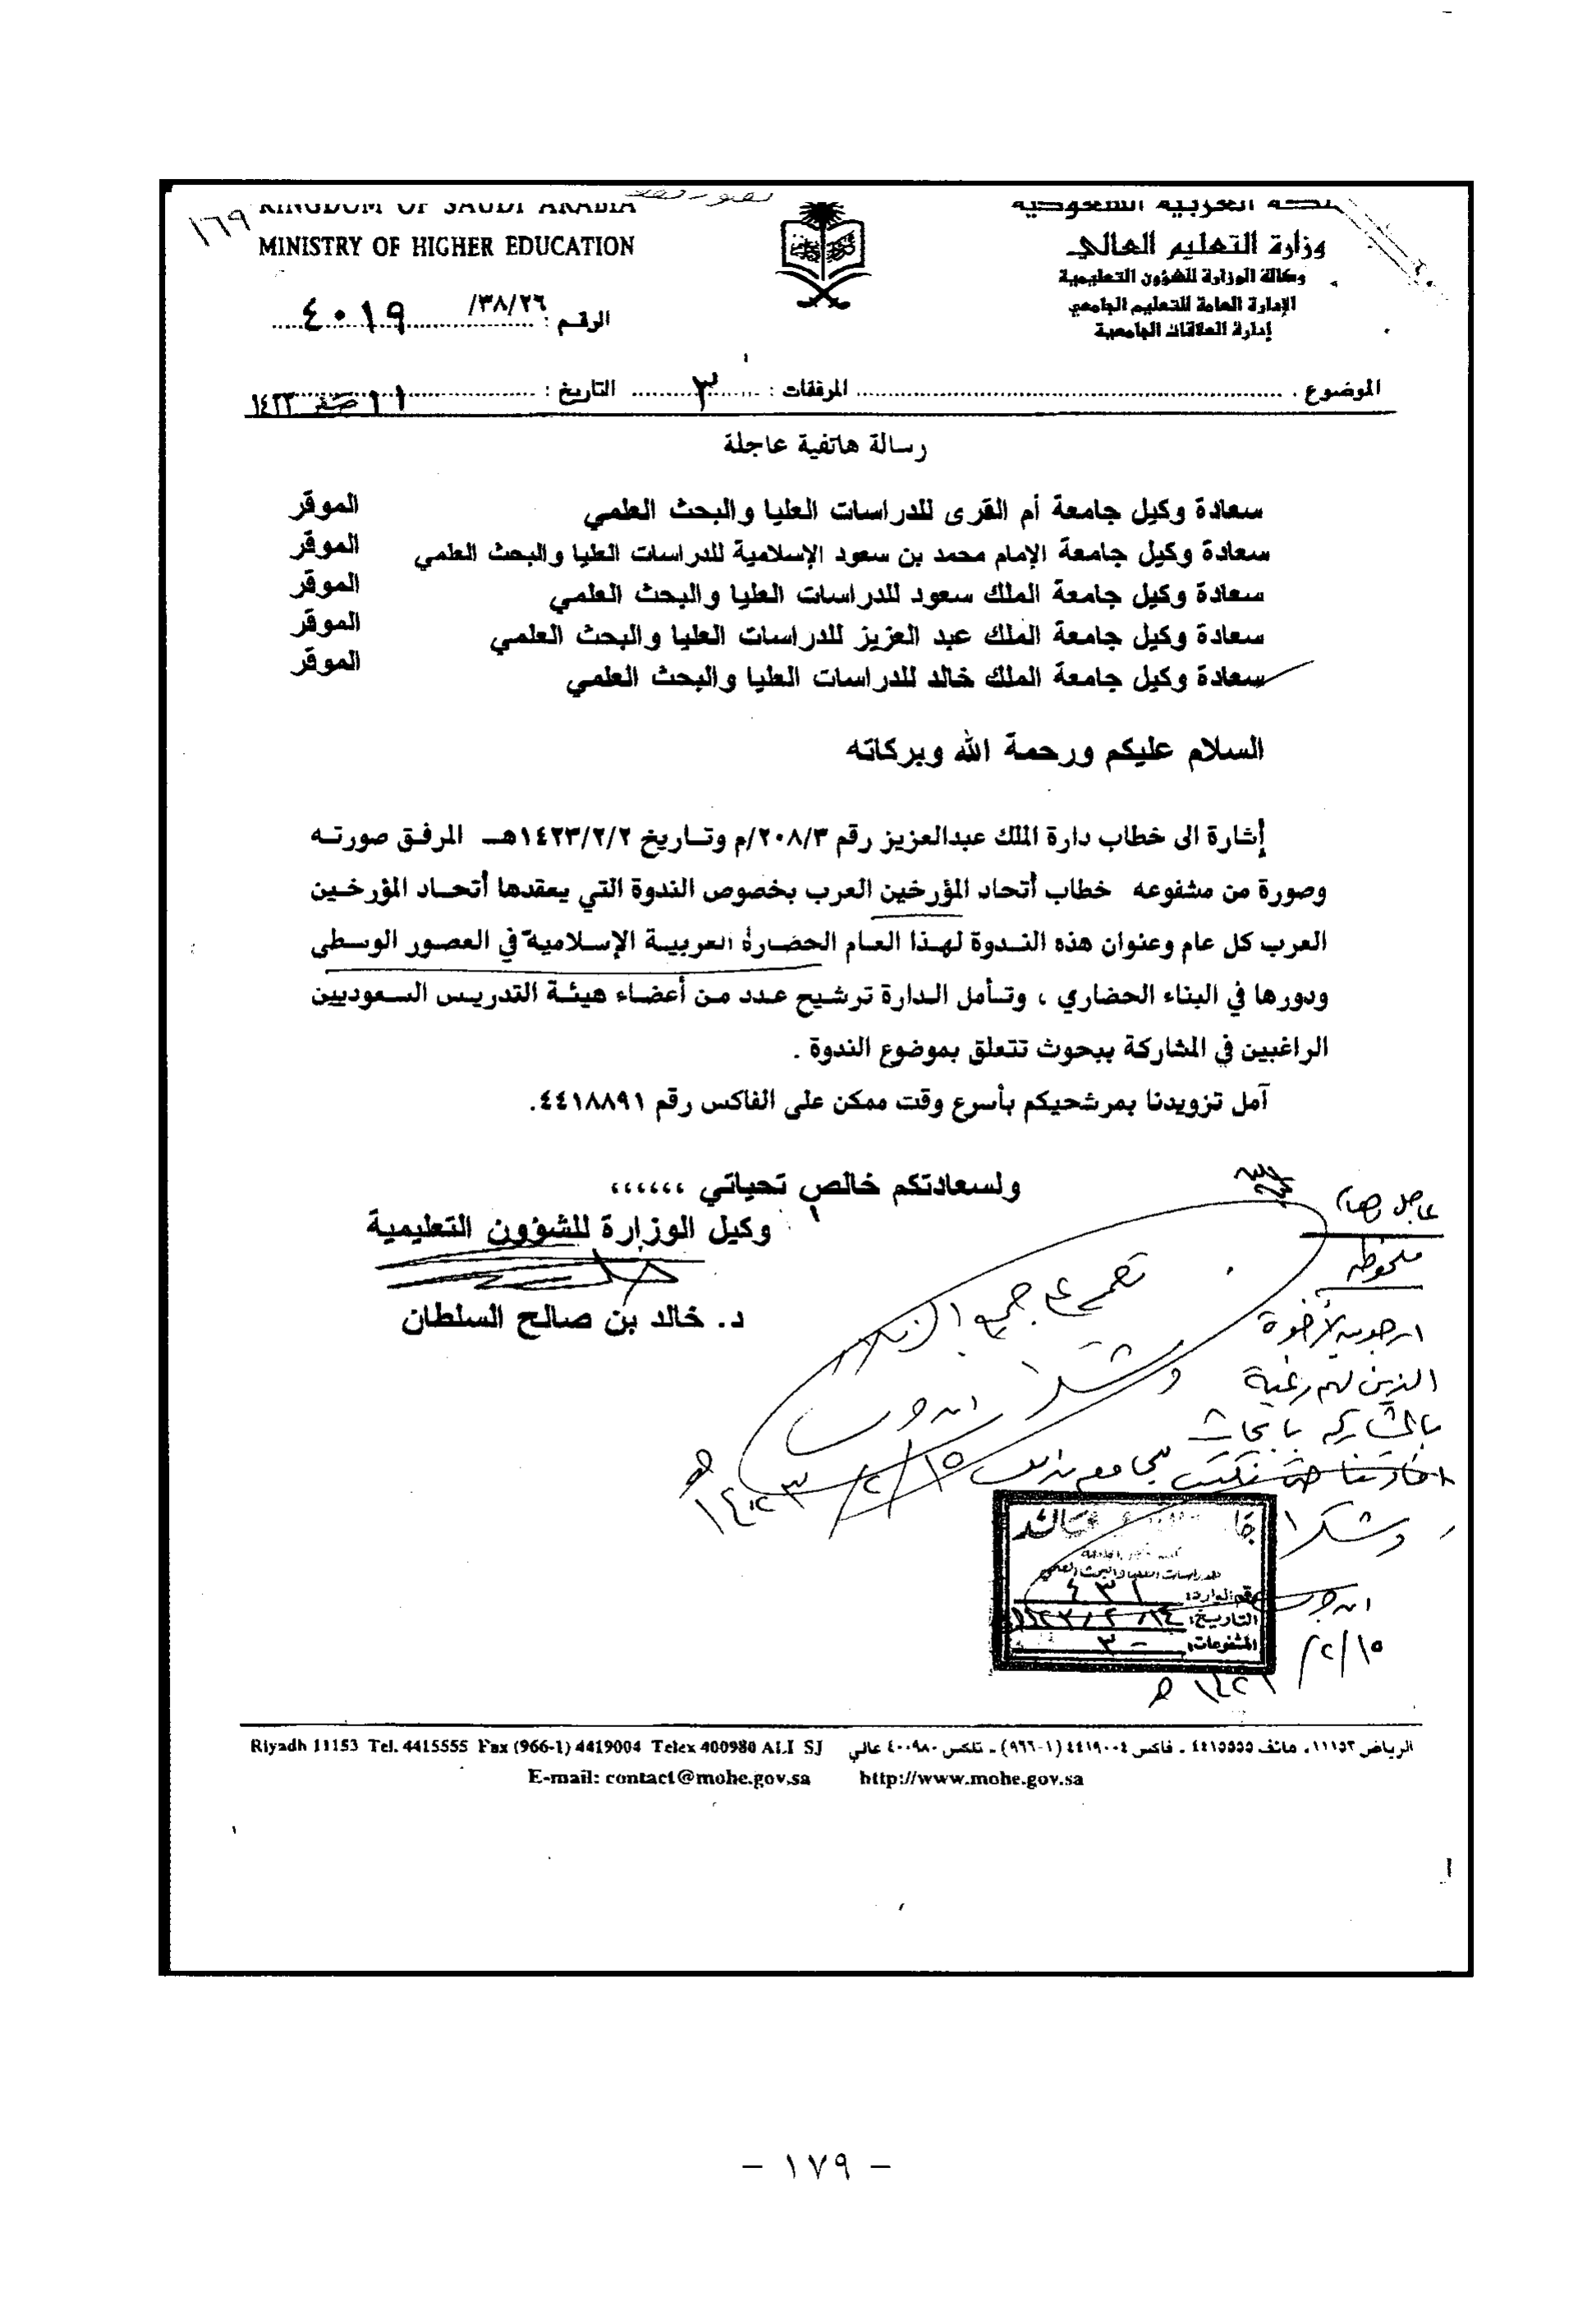 ١٦٩
KINGDOM OF SAUDI ARABIA
MINISTRY OF HIGHER EDUCATION
العربية السعودية
وزارة التعليم العالي
وكالة الوزارة للشؤون التعليمية
الإدارة العامة للتعليم الجامعي
إدارة العلاقات الجامعية
الرقم : ٣٨/٢٦/ ٤٠١٩
الموضوع . المرفقات : ٣ التاريخ : ١١ صفر ١٤٢٣
رسالة هاتفية عاجلة
سعادة وكيل جامعة أم القرى للدراسات العليا والبحث العلمي الموقر
سعادة وكيل جامعة الإمام محمد بن سعود الإسلامية للدراسات العليا والبحث العلمي الموقر
سعادة وكيل جامعة الملك سعود للدراسات العليا والبحث العلمي الموقر
سعادة وكيل جامعة الملك عبد العزيز للدراسات العليا والبحث العلمي الموقر
سعادة وكيل جامعة الملك خالد للدراسات العليا والبحث العلمي الموقر
السلام عليكم ورحمة الله وبركاته
إشارة الى خطاب دارة الملك عبدالعزيز رقم ٢٠٨/٣/م وتاريخ ١٤٢٣/٢/٢هـ المرفق صورته
وصورة من مشفوعه خطاب أتحاد المؤرخين العرب بخصوص الندوة التي يعقدها أتحاد المؤرخين
العرب كل عام وعنوان هذه الندوة لهذا العام الحضارة العربية الإسلامية في العصور الوسطى
ودورها في البناء الحضاري ، وتأمل الدارة ترشيح عدد من أعضاء هيئة التدريس السعوديين
الراغبين في المشاركة ببحوث تتعلق بموضوع الندوة .
آمل تزويدنا بمرشحيكم بأسرع وقت ممكن على الفاكس رقم ٤٤١٨٨٩١.
ولسعادتكم خالص تحياتي ،،،،،،
وكيل الوزارة للشؤون التعليمية
د. خالد بن صالح السلطان
ملحوظة
ارجو من الأخوة
الذين لهم رغبة
بالمشاركة بابحاث
وشكرا
١٥/٢/
تعمم على جميع الزملاء
وشكرا
١٥/٢/١٤٢٣هـ
للدراسات العليا والبحث العلمي
رقم الوارد: ٤٣١
التاريخ:
المشفوعات: ٣
الرياض ١١١٥٣، هاتف ٤٤١٥٥٥٥ ـ فاكس ٤٤١٩٠٠٤ (١-٩٦٦) ـ تلكس ٤٠٠٩٨٠ عالي
Riyadh 11153 Tel. 4415555 Fax (966-1) 4419004 Telex 400980 ALI SJ
E-mail: contact@mohe.gov.sa http://www.mohe.gov.sa
- ١٧٩ -